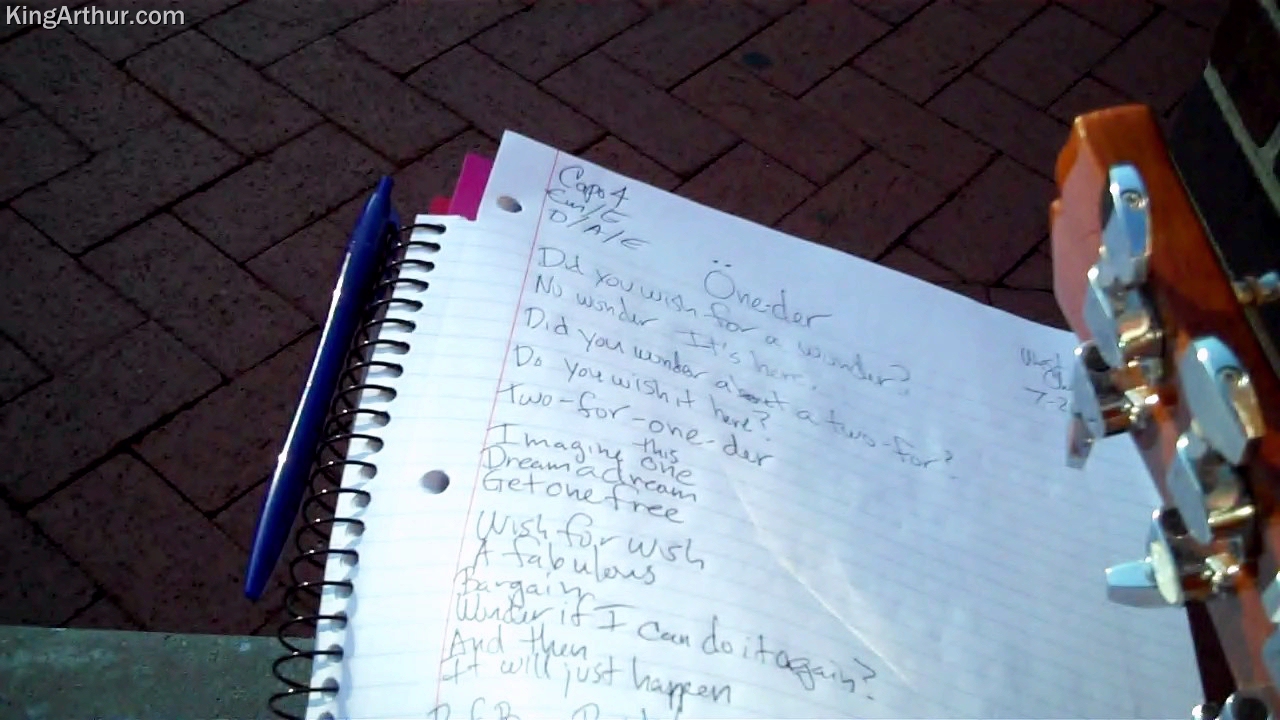 KingArthur.com
Capo 4
Em/E
D/A/E
Öne-der
Did you wish for a wunder?
No wunder It's here.
Did you wunder about a two-for?
Do you wish it here?
Two-for-one-der
Imagine this one
Dream a dream
Get one free
Wish for wish
A fabulous
Bargain
Wunder if I can do it again?
And then
It will just happen
7-2